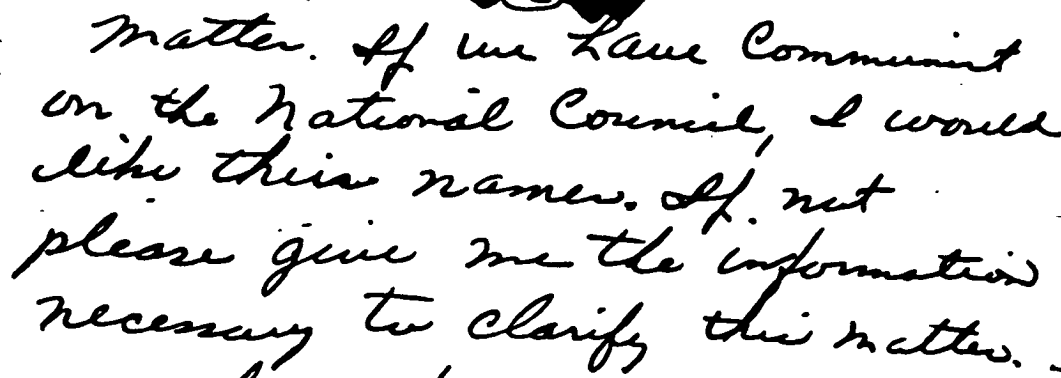 matter. If we have Communist
on the National Council, I would
like their names. If not
please give me the information
necessary to clarify this matter.